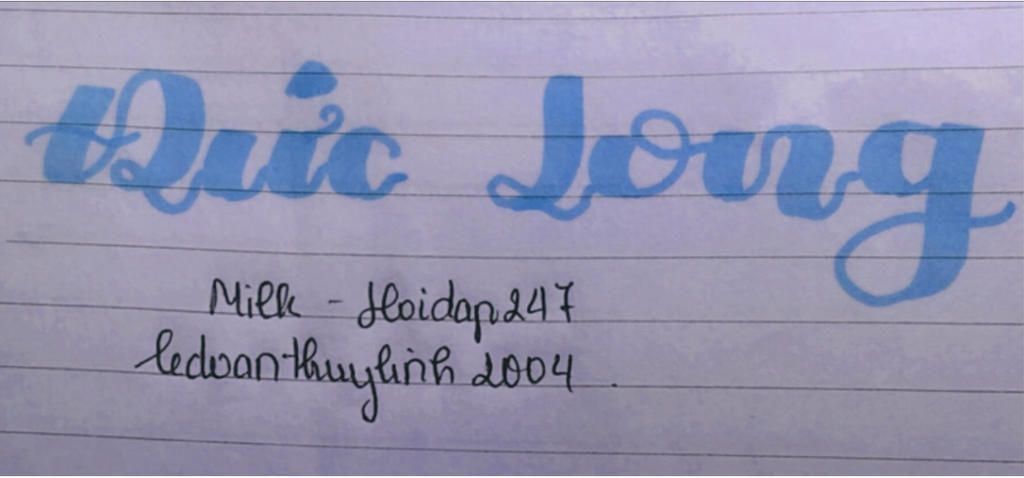 Đức Long
Milk - Hoidap247
ledoanthuylinh2004.